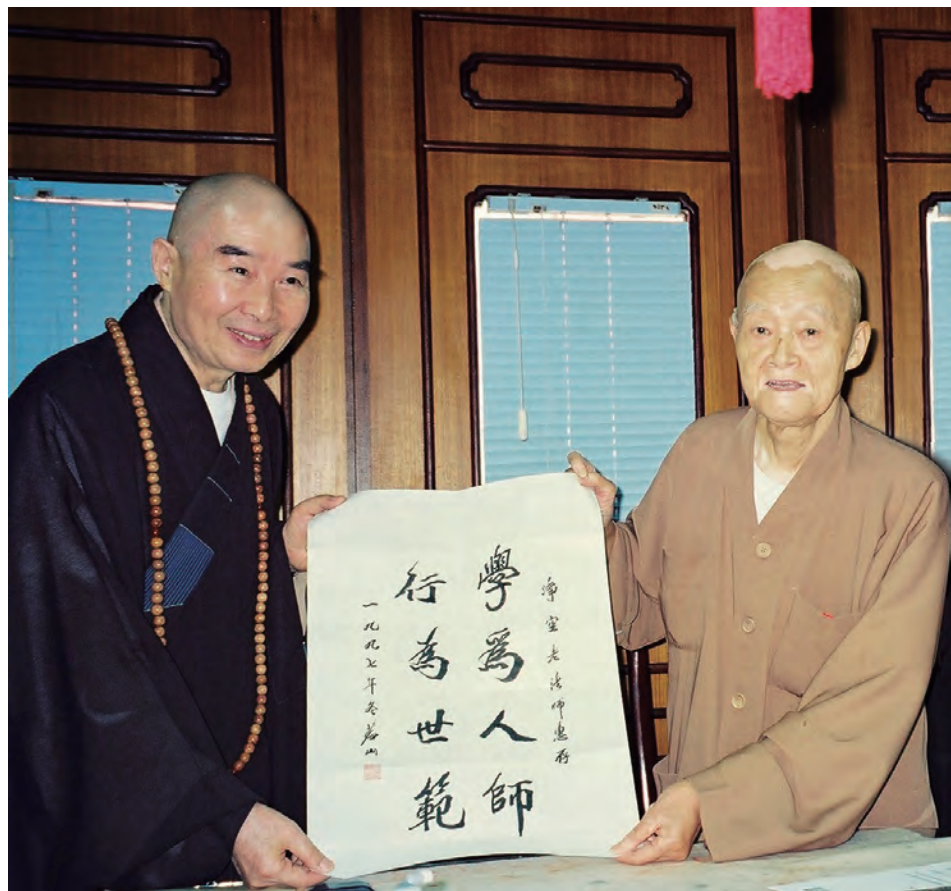 淨空老法師惠存
學為人師
行為世範
一九九七年冬茗山